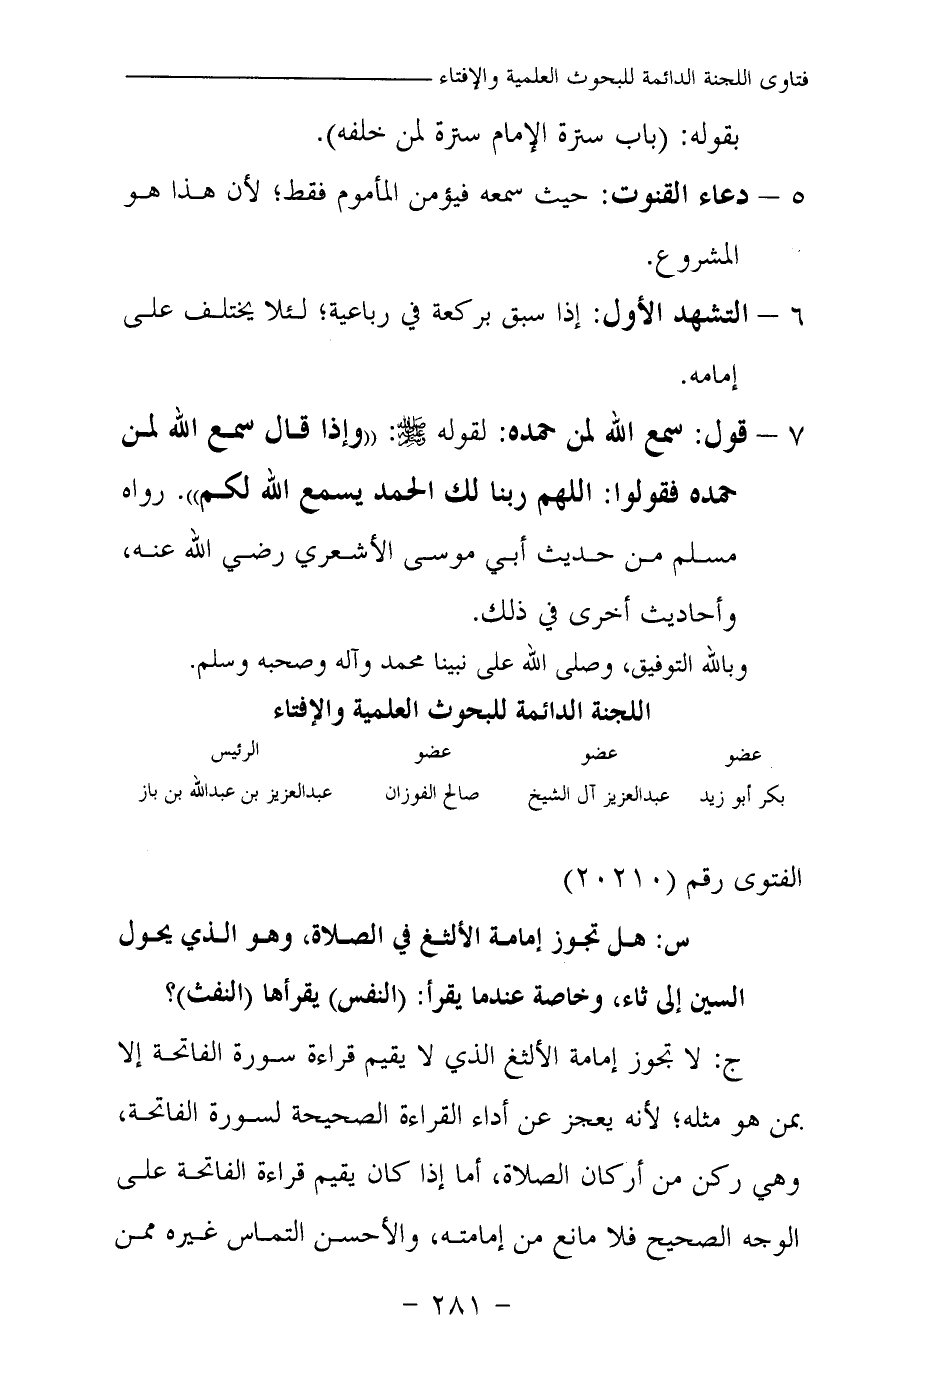 فتاوى اللجنة الدائمة للبحوث العلمية والإفتاء
بقوله: (باب سترة الإمام سترة لمن خلفه).
٥ – دعاء القنوت: حيث سمعه فيؤمن المأموم فقط؛ لأن هذا هو
المشروع.
٦ – التشهد الأول: إذا سبق بركعة في رباعية؛ لئلا يختلف على
إمامه.
٧ – قول: سمع الله لمن حمده: لقوله ﷺ: ((وإذا قال سمع الله لمن
حمده فقولوا: اللهم ربنا لك الحمد يسمع الله لكم)). رواه
مسلم من حديث أبي موسى الأشعري رضي الله عنه،
وأحاديث أخرى في ذلك.
وبالله التوفيق، وصلى الله على نبينا محمد وآله وصحبه وسلم.
اللجنة الدائمة للبحوث العلمية والإفتاء
عضو عضو عضو الرئيس
بكر أبو زيد عبدالعزيز آل الشيخ صالح الفوزان عبدالعزيز بن عبدالله بن باز
الفتوى رقم (٢٠٢١٠)
س: هل تجوز إمامة الألثغ في الصلاة، وهو الذي يحول
السين إلى ثاء، وخاصة عندما يقرأ: (النفس) يقرأها (النفث)؟
ج: لا تجوز إمامة الألثغ الذي لا يقيم قراءة سورة الفاتحة إلا
بمن هو مثله؛ لأنه يعجز عن أداء القراءة الصحيحة لسورة الفاتحة،
وهي ركن من أركان الصلاة، أما إذا كان يقيم قراءة الفاتحة على
الوجه الصحيح فلا مانع من إمامته، والأحسن التماس غيره ممن
– ٢٨١ –